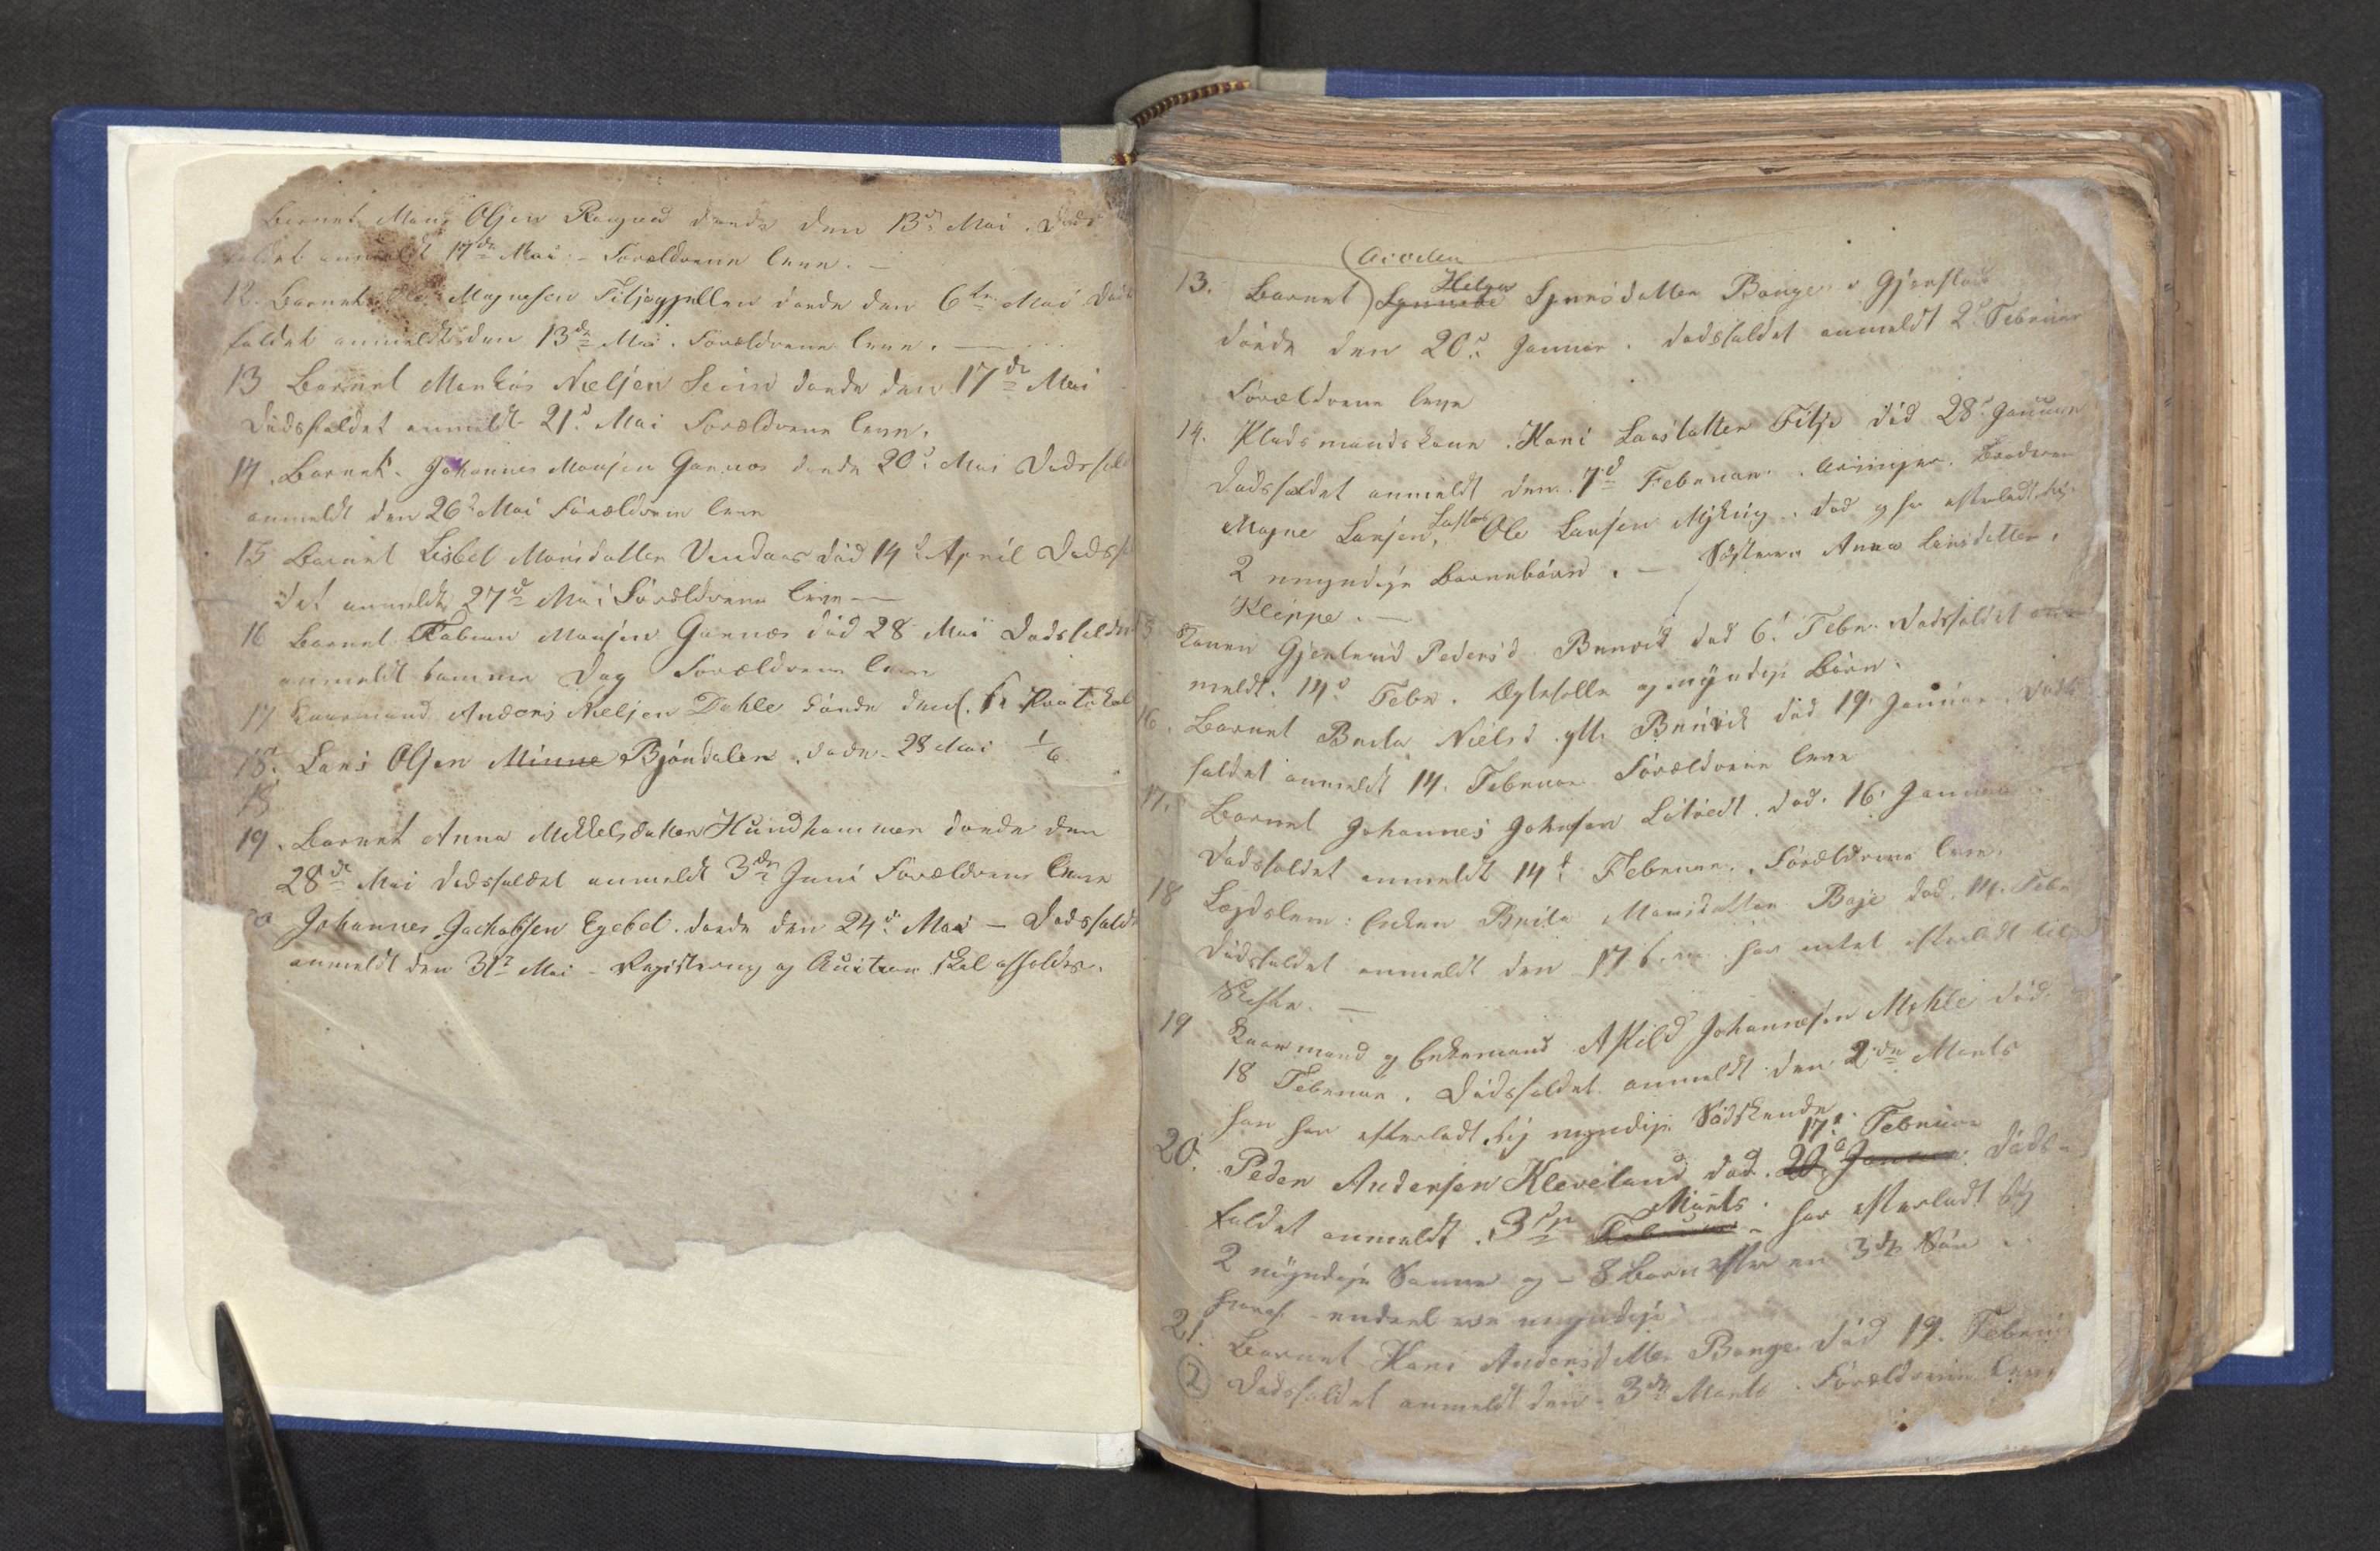 Barnet Mons Olsen Raugned døede den 13de Mai. Døds
faldet anmeldt 17de Mai - Forældrene leve. —
12. Barnet Magnesen Filjegjellen døede den 6te Mai Døds
faldet anmeldt den 13de Mai. Forældrene leve. —
13 Barnet Monkos Nielsen Seim døede den 17de Mai
Dødsfaldet anmeldt 21d Mai Forældrene leve.
14. Barnet Johannes Monsen Garnæs døede 20d Mai Dødsfald
anmeldt den 26d Mai Forældrene leve
15 Barnet Lisbet Monsdatter Vendaas død 14d April Dødsf
det anmeldt 27d Mai Forældrene leve —
16 Barnet Fabian Monsen Garnæs død 28 Mai Dødsfaldet
anmeldt samme Dag Forældrene leve
17 Kaarmand Anders Nielsen Dahle døede
18. Lars Olsen Minne Bjørndalen, døde 28 Mai 1/6
19. Barnet Anna Mikkelsdatter Hundhammer døede den
28de Mai Dødsfaldet anmeldt 3de Juni Forældrene leve
Johannes Jackobsen Egebet. døede den 24d Mai — Dødsfaldet
anmeldt den 31d Mai - Registering og Auction skal afholdes.
13. Barnet Helga Sjursdatter Bange
døede den 20d Januar. dødsfaldet anmeldt 2d Februar
Forældrene leve
14. Pladsmandskone Kari Larsdatter Fitje død 28d Januar
Dødsfaldet anmeldt den 7d Februar. Arvinger. Brødrene
Magne Larsen, Ole Larsen Myking. død og har efterladt sig
2 umyndige Barnebørn. — Søsteren Anna Larsdatter
Kleppe. —
Konen Gjertrud Pedersd. Brurvik død 6d Febr. Dødsfaldet an
meldt. 14d Febr. Ægtefelle og myndige Børn.
16. Barnet Brita Nielsd Brurvik død 19. Januar. Døds
faldet anmeldt 14. Februar Forældrene leve
17. Barnet Johannes Johnsen Litvedt. død. 16. Januar
Dødsfaldet anmeldt 14d Februar. Forældrene leve.
18 Lægdslem: Enken Brita Monsdatter Boge død. 14. Febr
Dødsfaldet anmeldt den 17 har intet efterladt til
Skifte. —
19 Kaarmand og Enkemand Askild Johannesen Mehle død.
18 Februar. Dødsfaldet anmeldt den 2den Marts
han har efterladt sig myndige Sødskende
17d Februar
20. Peder Andersen Kleveland død. 20d Januar. Døds-
Marts.
faldet anmeldt. 3de Februar - har efterladt sig
2 myndige Sønner og - 8 Børn efter en 3de Søn
hvoraf - endeel ere umyndige
21. Barnet Kari Andersdatter Bange død 19. Februar
2 Dødsfaldet anmeldt den 3de Marts. Forældrene leve